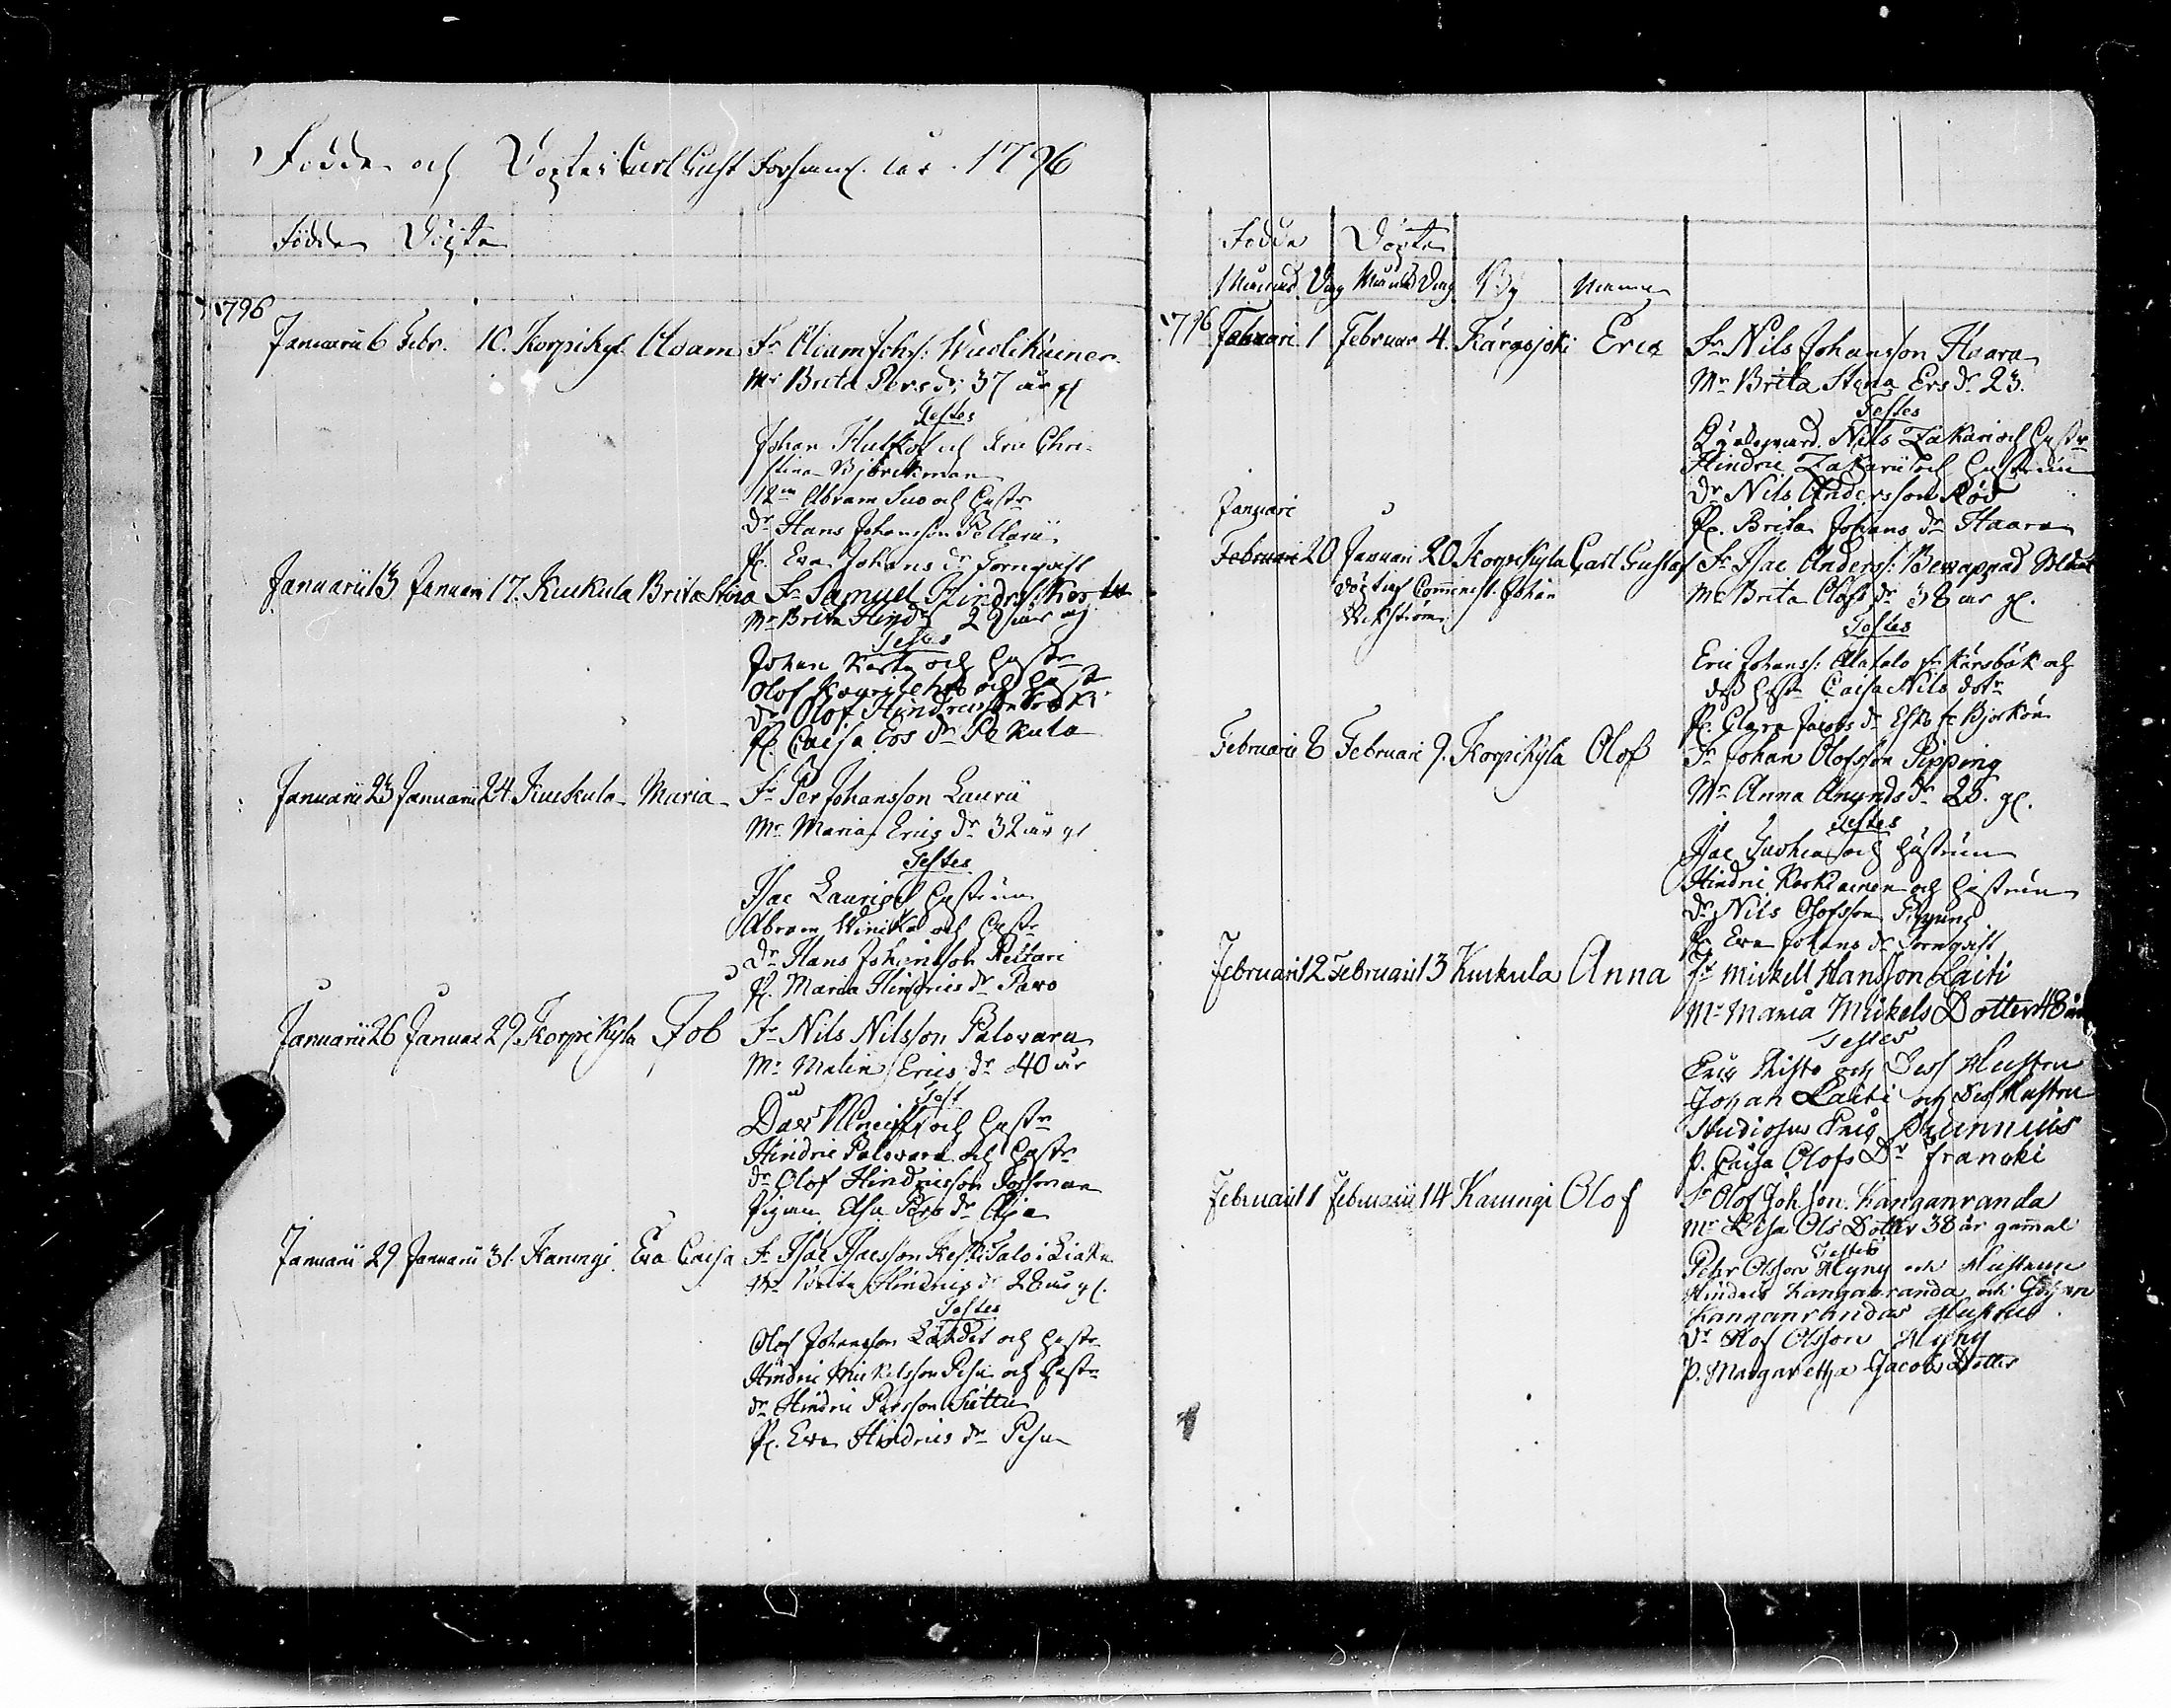 Födde och Döpte i Carl Gust. Församl. år 1796
Födde Döpte
1796
Januarii 6 Febr. 10. Korpikyl. Adam Fr Adam Johs: Wuolikainen
Mr Brita Persdr 37 år gl
Testes
Johan Hulkof och Chri-
stina Björckman
Abram Suo och Hustr
Dr Hans Johansson Pellarii
P. Eva Johans dr Tornqvist
Januarii 13 Januari 17. Kuckula Brita Stina Fr Samuel Hindrs: Kertu
Mr Brita Hindr 29 år gl
Testes
Johan och Hustr
Olof och Hustr
Dr Olof Hindricsson
P. Caisa Ers dr Pekula
Januarii 23 Januarii 24. Kuckula Maria Fr Per Johansson Laurii
Mr Maria Erics dr 32 år gl
Testes
Isac Laurio Hustrun
Abram Winikka och Hustr
Dr Hans Johansson Peltari
P. Maria Hindrics dr Pavo
Januarii 26 Januar 29. Korpikyla Job Fr Nils Nilsson Palovara
Mr Malin Erics dr 40 år
Test
Dav och Hustr
Hindric Palovara och Hustr
dr Olof Hindricsson Forsman
Pigan Elsa Pers dr Alja
Januarii 29 Januarii 31. Karungi Eva Caisa Fr Isac Isacsson Keskitalo i Liakka
Mr Brita Hindrics dr 28 år gl.
Testes
Olof JohanssonLändet och Hustr
Hindric Mickelsson Pesu och Hustr
dr Hindric Persson Suttu
P. Eva Hindrics dr Pesu
Födde Döpte
Månad Dag Månad Dag By Namn
1796 Februari 1 Februar 4. Kärasjoki Eric Fr Nils Johansson Haara
Mr Brita Stena Ers dr 23.
Testes
Nils Zakari och Hustr
Hindric Zakarii och Hustrun
Dr Nils Andersson Röd
P. Brita Johans dr Haara
Januari
Februari 20 Januari 20 Korpikyla Carl Gustaf Fr Isac Anders: Bewappad Soldat
Döpt af Comminist. Johan Mr Brita Olofs dr 38 år gl.
Wikström
Testes
Eric Johanss: Alatalo fr Kärsbäk och
dess Hustr Caisa Nils dotr
P. Clara Jacobs dr Esko fr Björkön
Februarii 8 Februari 9. Korpikyla Olof Fr Johan Olofsson Pipping
Mr Anna Anunds dr 25. gl.
Testes
Isac och Hustrun
Hindric Kerkiainen och Hustrun
Dr Nils Olofsson Pipping
P. Eva Johans dr Tornqvist
Februari 12 Februari 13 Kuckula Anna Fr Mickell Hansson Laiti
Mr Maria Mickels Dotter 48 år
Testes
Eric Risto och Dess Hustru
Johan Laiti och Des Hustru
Studiosus Eric Brunnius
P. Caisa Olofs Dr Francki
Februari 11 Februarii 14 Karungi Olof Fr Olof Johsson. Kanganranda
Mr Lisa Ols Dotter 38 år gamal
Testes
Petr Olsson Hyny och Hustrun
Hindric Kanganranda och Johan
Kanganrandas Hustru
Dr Olof Olsson Hyny
P. Margaretha Jacobs Dotter